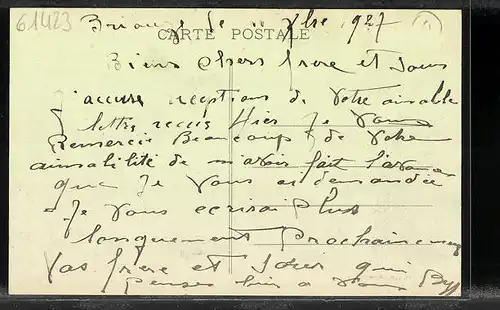 61423
Briouze le 11 7bre 1927
CARTE POSTALE
Biens chers frere et soeur
J'accuse reception de votre aimable
lettre recus Hier Je Vous
Remercie Beaucoup de Votre
aimabilité de m'avoir fait l'avance
que Je Vous ai demandée
Je Vous ecrirai Plus
longuement Prochainement
Vos frere et soeur qui
Pense bien a Vous